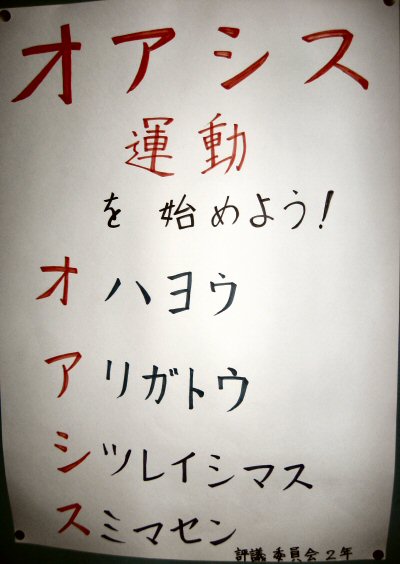 オアシス
運動
を始めよう!
オハヨウ
アリガトウ
シツレイシマス
スミマセン
評議委員会2年